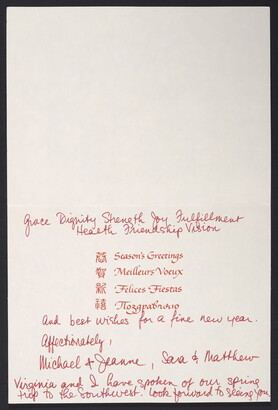 Grace Dignity Strength Joy Fulfillment
Health Friendship Vision
恭 Season's Greetings
賀 Meilleurs Voeux
新 Felices Fiestas
禧 Поздравляю
And best wishes for a fine new year.
Affectionately,
Michael & Jeanne, Sara & Matthew
Virginia and I have spoken of our spring
trip to the Southwest. Look forward to seeing you